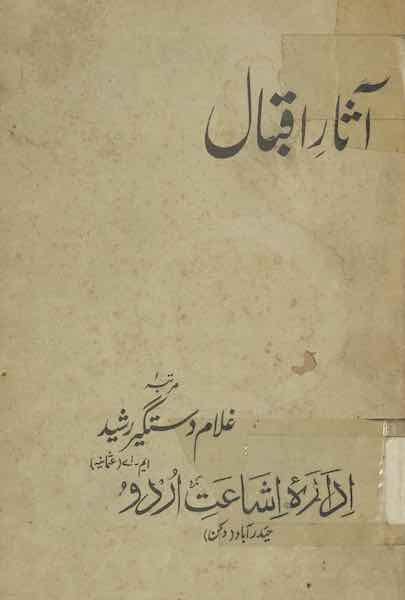 آثارِ اقبال
مرتبہ
غلام دستگیر رشید
ایم۔اے (عثمانیہ)
ادارۂ اشاعتِ اُردو
حیدرآباد (دکن)